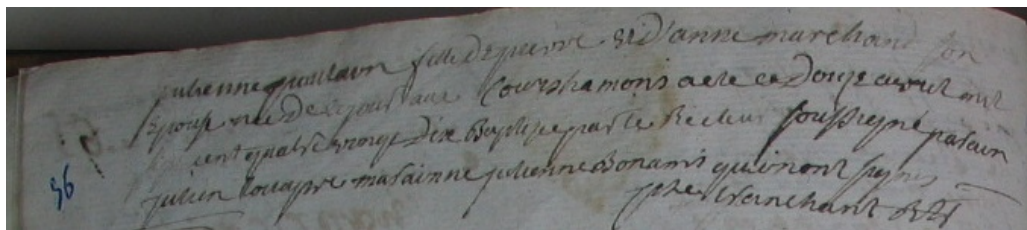 julienne poulain fille de pierre et d'anne marchand son
Epouse née de ce jour au Courshamons a ete ce Douze aout mil
six cent quatre vingt Dix Baptisee par le Recteur soussigné parain
julien louapre marainne julienne Bonamis qui n'ont signes
96
tranchant Rtr